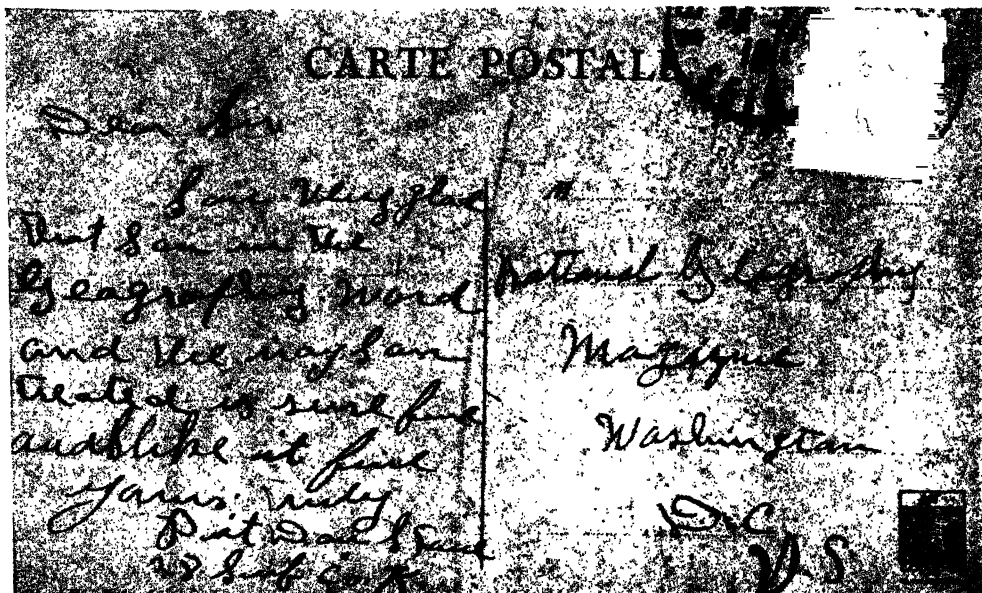 CARTE POSTALE
Dear Sir
I am very glad
that I am in the
Geography Word
and the way I am
treated is sure fine
and I like it fine
yours truly
National Geography
Magazine
Washington
D.C.
U.S.